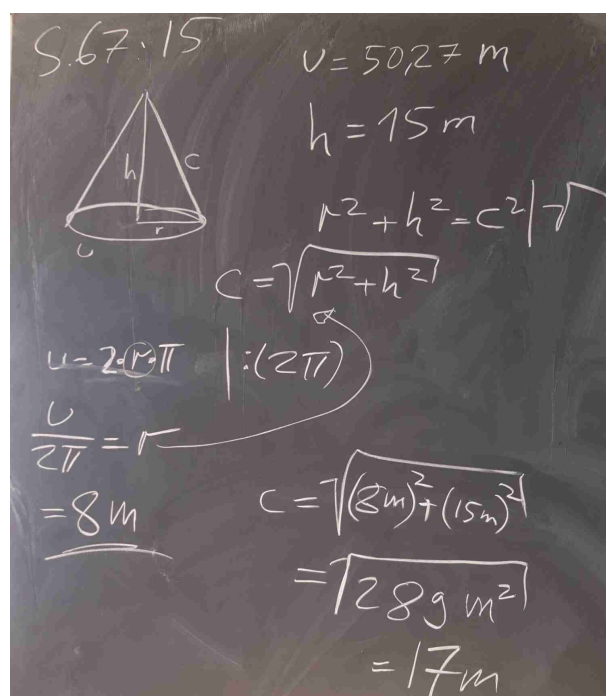 S.67:15
U = 50,27 m
h = 15 m
h
c
r
U
r² + h² = c² | √
c = √(r² + h²)
u = 2·r·π | :(2π)
U/2π = r
= 8 m
c = √((8m)² + (15m)²)
= √(289 m²)
= 17 m